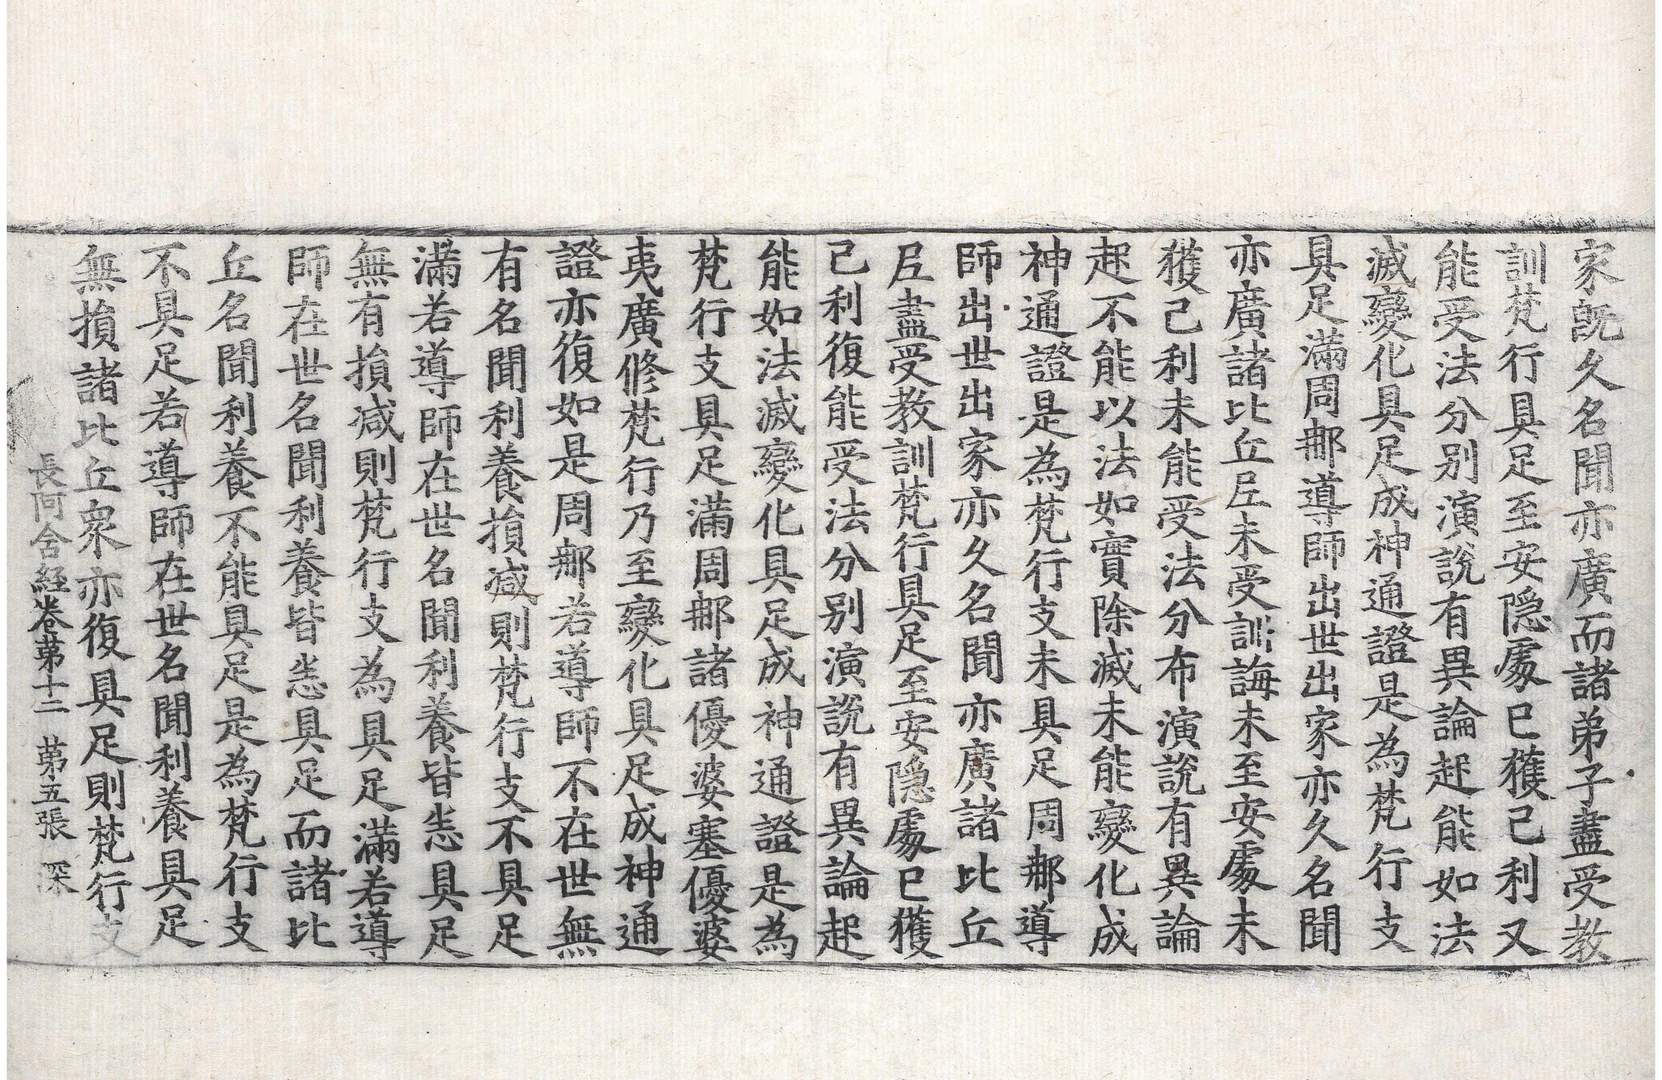 家既久名聞亦廣而諸弟子盡受教
訓梵行具足至安隠處已獲己利又
能受法分別演說有異論起能如法
滅變化具足成神通證是為梵行支
具足滿周那導師出世出家亦久名聞
亦廣諸比丘尼未受訓誨未至安處未
獲己利未能受法分布演說有異論
起不能以法如實除滅未能變化成
神通證是為梵行支未具足周那導
師出世出家亦久名聞亦廣諸比丘
尼盡受教訓梵行具足至安隠處已獲
己利復能受法分別演說有異論起
能如法滅變化具足成神通證是為
梵行支具足滿周那諸優婆塞優婆
夷廣修梵行乃至變化具足成神通
證亦復如是周那若導師不在世無
有名聞利養損減則梵行支不具足
滿若導師在世名聞利養皆悉具足
無有損減則梵行支為具足滿若導
師在世名聞利養皆悉具足而諸比
丘名聞利養不能具足是為梵行支
不具足若導師在世名聞利養具足
無損諸比丘衆亦復具足則梵行支
長阿含経卷苐十二 苐五張 深